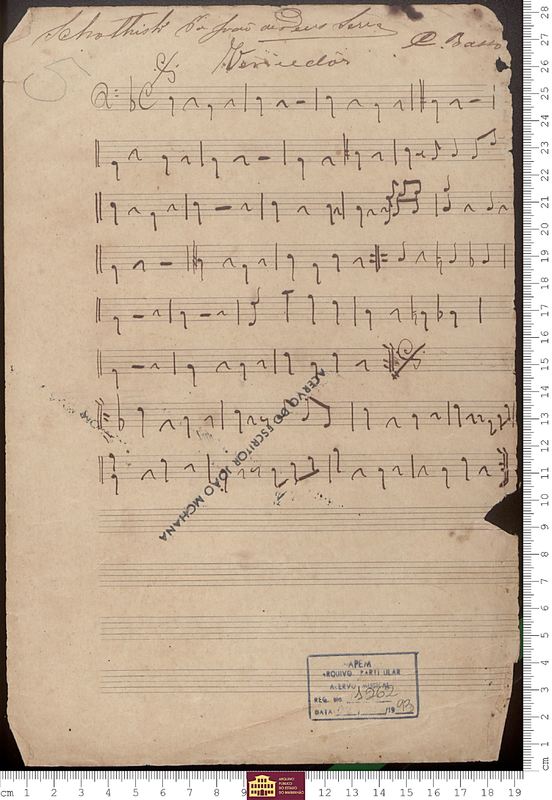 Schothish Por João de Deus Serra
C. Basso
Vencedor
ACERVO DO ESCRITOR JOÃO MOHANA
APEM
ARQUIVO PARTICULAR
ACERVO MUSICAL
REG. No 1362
DATA / /1993
cm 1 2 3 4 5 6 7 8 9 12 13 14 15 16 17 18 19
ARQUIVO
PÚBLICO
DO ESTADO
DO MARANHÃO
28
27
26
25
24
23
22
21
20
19
18
17
16
15
14
13
12
11
10
9
8
7
6
5
4
3
2
1
cm